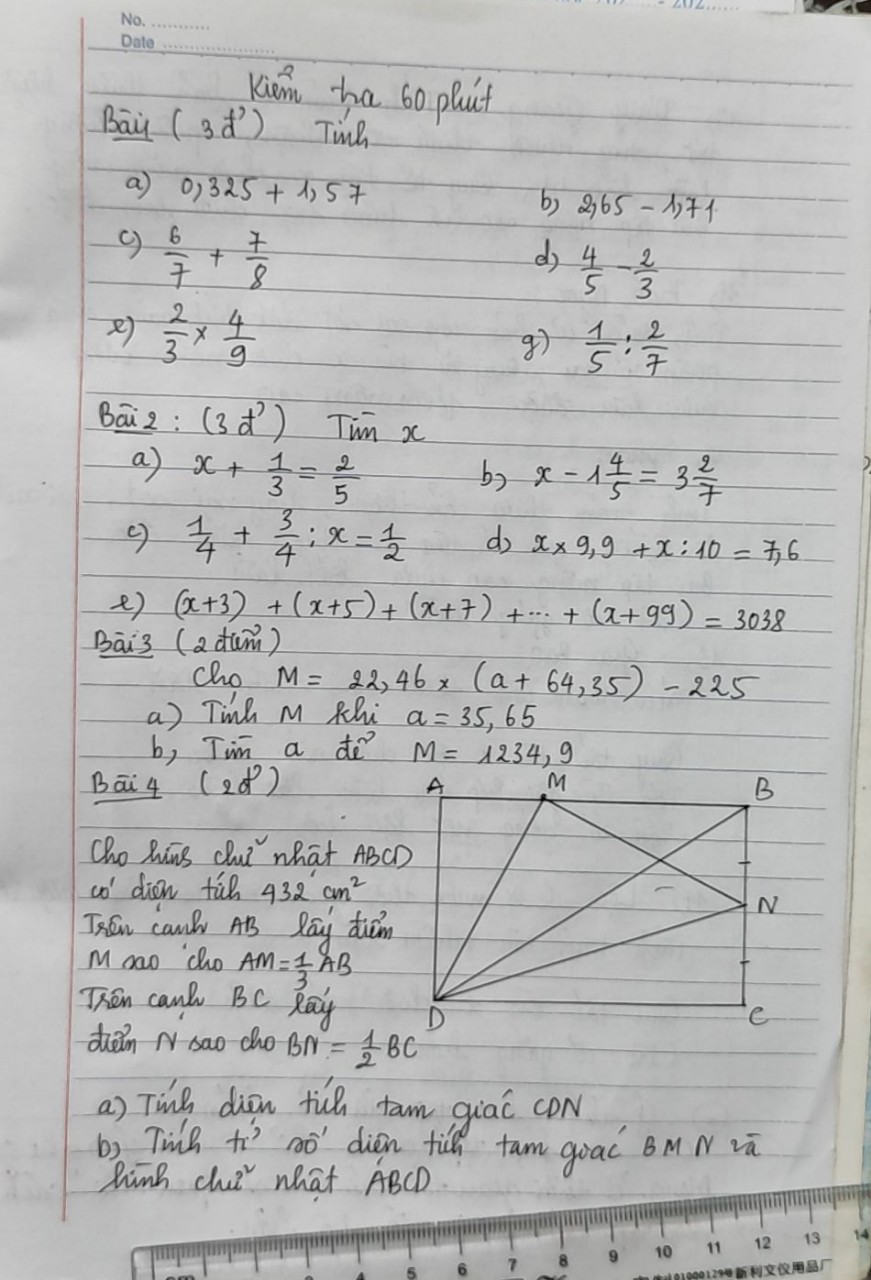 No. ............
Date ........................
Kiểm tra 60 phút
Bài 1 (3đ') Tính
a) 0,325 + 1,57 b) 2,65 - 1,71
c) 6/7 + 7/8 d) 4/5 - 2/3
e) 2/3 × 4/9 g) 1/5 : 2/7
Bài 2 : (3đ') Tìm x
a) x + 1/3 = 2/5 b) x - 1 4/5 = 3 2/7
c) 1/4 + 3/4 : x = 1/2 d) x × 9,9 + x : 10 = 7,6
e) (x+3) + (x+5) + (x+7) + ... + (x+99) = 3038
Bài 3 (2 điểm)
Cho M = 22,46 × (a + 64,35) - 225
a) Tính M khi a = 35,65
b) Tìm a để M = 1234,9
Bài 4 (2đ')
A M B
Cho hình chữ nhật ABCD
có diện tích 432 cm²
N
Trên cạnh AB lấy điểm
M sao cho AM = 1/3 AB
Trên cạnh BC lấy
D C
điểm N sao cho BN = 1/2 BC
a) Tính diện tích tam giác CDN
b) Tính tỉ số diện tích tam giác BMN và
hình chữ nhật ABCD
5 6 7 8 9 10 11 12 13 14